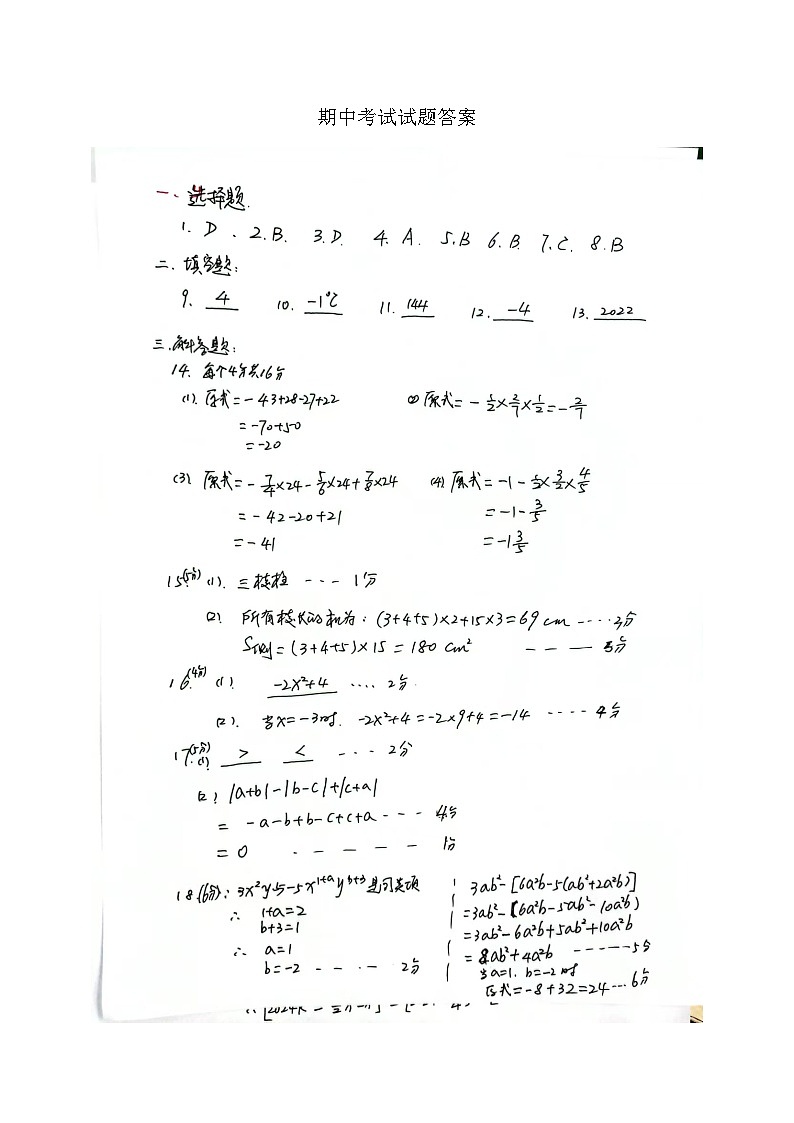 期中考试试题答案
一、选择题.
1. D 、2. B. 3. D. 4. A. 5. B 6. B. 7. C. 8. B
二. 填空题:
9. 4 10. -1℃ 11. 144 12. -4 13. 2022
三. 解答题:
14. 每个4分共16分
(1). 原式=-43+28-27+22
=-70+50
=-20
(2) 原式=-5/2×2/7×1/2=-2/7
(3) 原式=-7/4×24-5/6×24+7/8×24
=-42-20+21
=-41
(4) 原式=-1-1/2×3/2×4/5
=-1-3/5
=-1 3/5
15.(5分) (1). 三棱柱 --- 1分
(2) 所有棱长的和为: (3+4+5)×2+15×3=69 cm ---- 3分
S侧=(3+4+5)×15=180 cm² - - - 5分
16.(4分) (1). -2x²+4 .... 2分.
(2). 当x=-3时. -2x²+4=-2×9+4=-14 ---- 4分
17.(5分) (1) > < --- 2分
(2) |a+b|-|b-c|+|c+a|
= -a-b+b-c+c+a --- 4分
=0 - - - - - 1分
18.(6分): 3x²y与-5x^{1+a}y^{b+3}是同类项
∴ 1+a=2
b+3=1
∴ a=1
b=-2 ---- 2分
3ab²-[6a²b-5(ab²+2a²b)]
=3ab²-(6a²b-5ab²-10a²b)
=3ab²-6a²b+5ab²+10a²b
=8ab²+4a²b ------5分
当a=1. b=-2时
原式=-8+32=24 ... 6分